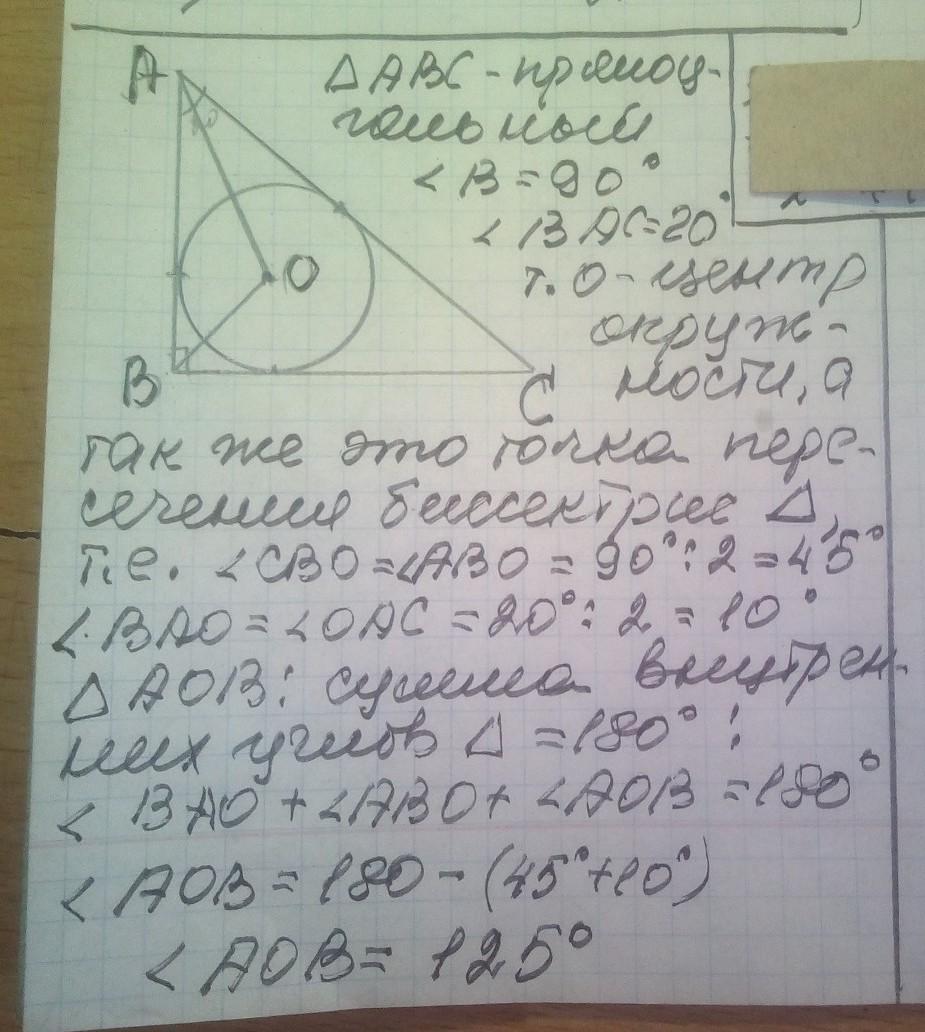 A
ΔABC - прямоу-
гольный
∠B = 90°
∠BAC = 20°
т. О - центр
O
окруж-
B
C
ности, а
так же это точка пере-
сечения биссектрис Δ,
т.е. ∠CBO = ∠ABO = 90° : 2 = 45°
∠BAO = ∠OAC = 20° : 2 = 10°
ΔAOB: сумма внутрен-
них углов Δ = 180°:
∠BAO + ∠ABO + ∠AOB = 180°
∠AOB = 180 - (45° + 10°)
∠AOB = 125°